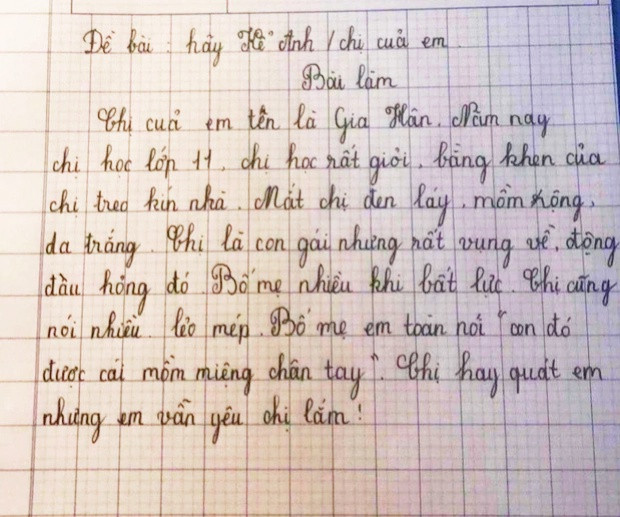 Đề bài : hãy kể anh / chị cuả em.
Bài làm
Chị cuả em tên là Gia Hân. Năm nay
chị học lớp 11, chị học rất giỏi, bằng khen của
chị treo kín nhà. Mắt chị đen láy, mồm rộng,
da trắng. Chị là con gái nhưng rất vụng về, động
đâu hỏng đó. Bố mẹ nhiều khi bất lực. Chị cũng
nói nhiều. lẻo mép. Bố mẹ em toàn nói "con đó
được cái mồm miệng chân tay". Chị hay quát em
nhưng em vẫn yêu chị lắm!